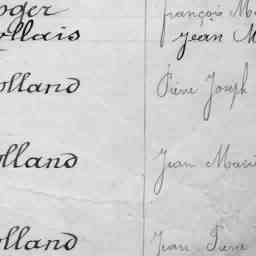 oger françois M
ollais Jean M
olland Pierre Joseph
olland Jean Marie
olland Jean Pierre